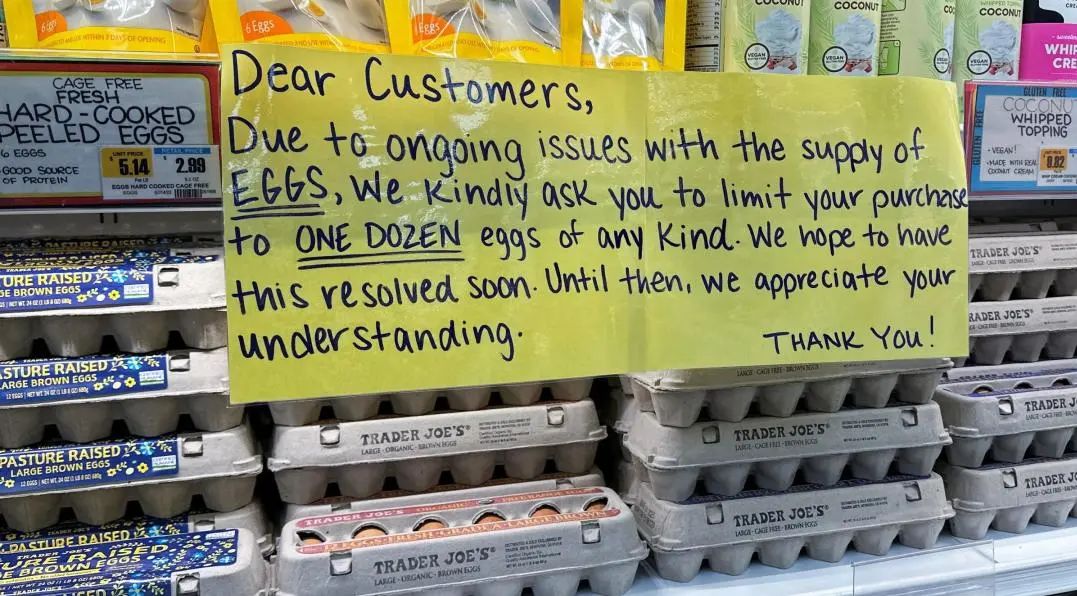 6 Eggs
6 Eggs
COCONUT
COCONUT
COCONUT
VEGAN
VEGAN
VEGAN
WHIP
CAGE FREE
FRESH
HARD-COOKED
PEELED EGGS
6 EGGS
GOOD SOURCE
OF PROTEIN
UNIT PRICE
5.14
RETAIL PRICE
2.99
EGGS HARD COOKED CAGE FREE
Dear Customers,
Due to ongoing issues with the supply of
EGGS, We kindly ask you to limit your purchase
to ONE DOZEN eggs of any kind. We hope to have
this resolved soon. Until then, we appreciate your
understanding.
THANK YOU!
GLUTEN FREE
COCONUT
WHIPPED
TOPPING
• VEGAN!
• MADE WITH REAL
COCONUT CREAM
PASTURE RAISED
LARGE BROWN EGGS
PASTURE RAISED
TRADER JOE'S
LARGE • ORGANIC • BROWN EGGS
TRADER JOE'S
ORGANIC
FREE RANGE
TRADER JOE'S
LARGE • ORGANIC • BROWN EGGS
LARGE • CAGE FREE • BROWN EGGS
TRADER JOE'S
LARGE • CAGE FREE • BROWN EGGS
TRADER JOE'S
LARGE • CAGE FREE • BROWN EGGS
TRADER JOE'S
TRADER JO